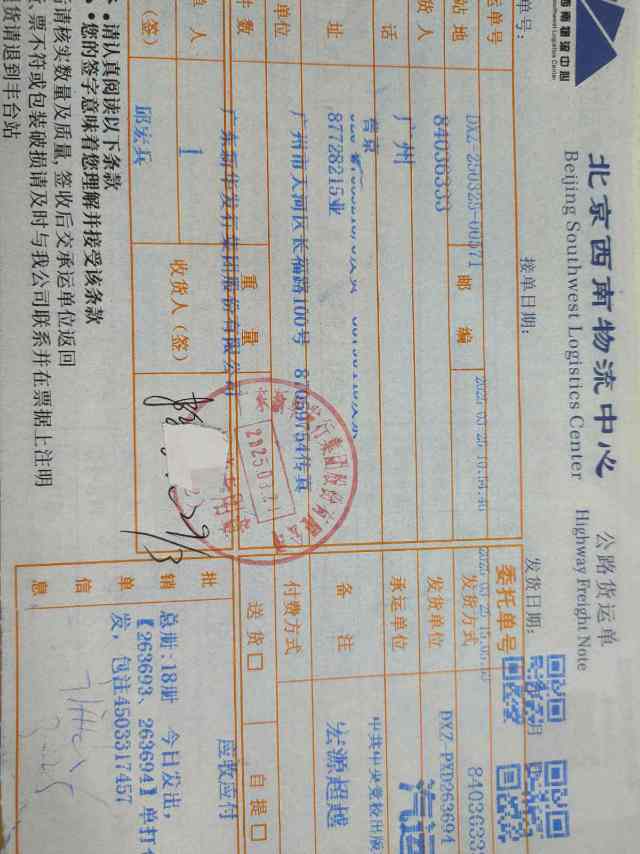 西南物流中心
Southwest Logistics Center
北京西南物流中心
Beijing Southwest Logistics Center
公路货运单
Highway Freight Note
单号:
接单日期:
发货日期:
运单号
DXZ-250325-00571
委托单号
站地
84036333
邮编
发货方式
84036333
货人
广州
发货单位
DXZ-PXD263694
话
承运单位
汽运
址
87728215业
备注
中共中央党校出版
宏源超越
单位
广州市天河区长福路100号 87059754传真
付费方式
应收应付
件数
广东新华发行集团股份有限公司
重量
送货□
自提□
准人
1
收货人(签)
(签)
邱宏兵
2025.03.27
批销单信息
总册:18册 今日发出,
【263693、263694】单打
发,包注4503317457
·请认真阅读以下条款
·您的签字意味着您理解并接受该条款
后请核实数量及质量,签收后交承运单位返回
票不符或包装破损请及时与我公司联系并在票据上注明
货请退到丰台站